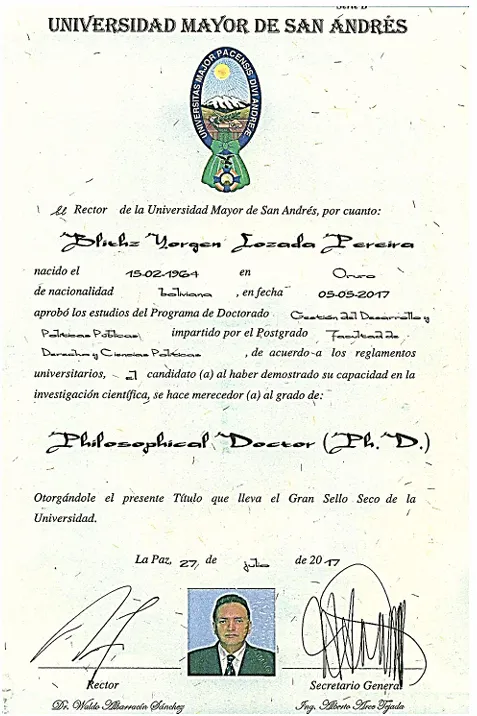 Serie B
UNIVERSIDAD MAYOR DE SAN ANDRÉS
UNIVERSITAS MAJOR PACENSIS DIVI ANDREÆ
El Rector de la Universidad Mayor de San Andrés, por cuanto:
Blithz Yorgen Lozada Pereira
nacido el 15-02-1964 en Oruro
de nacionalidad boliviana , en fecha 05-05-2017
aprobó los estudios del Programa de Doctorado Gestión del Desarrollo y
Políticas Públicas impartido por el Postgrado Facultad de
Derecho y Ciencias Políticas , de acuerdo a los reglamentos
universitarios, el candidato (a) al haber demostrado su capacidad en la
investigación científica, se hace merecedor (a) al grado de:
Philosophical Doctor (Ph. D.)
Otorgándole el presente Título que lleva el Gran Sello Seco de la
Universidad.
La Paz, 27, de julio de 2017
Rector Secretario General
Dr. Waldo Albarracín Sánchez Ing. Alberto Arce Tejada